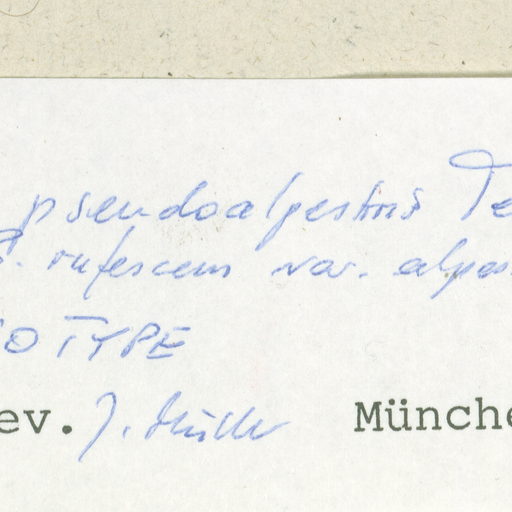 pseudoalpestris Te
S. rufescens var. alpes
IOTYPE
ev. J. Müller Münche